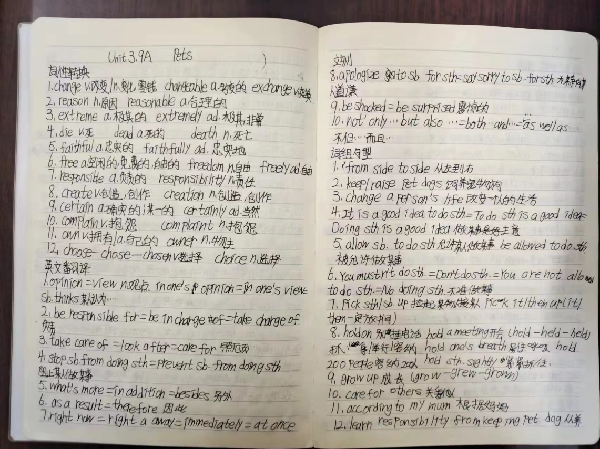 Unit 3. 9A Pets
词性转换
1. change v.改变/n.变化;零钱 changeable a.易变的 exchange v.交换
2. reason n.原因 reasonable a.合理的
3. extreme a.极其的 extremely ad.极其,非常
4. die v.死 dead a.死的 death n.死亡
5. faithful a.忠实的 faithfully ad.忠实地
6. free a.空闲的,免费的,自由的 freedom n.自由 freely ad.自由
7. responsible a.负责的 responsibility n.责任
8. create v.创造,创作 creation n.创造,创作
9. certain a.确实的,某一的 certainly ad.当然
10. complain v.抱怨 complaint n.抱怨
11. own v.拥有/a.自己的 owner n.物主
12. choose-chose-chosen v.选择 choice n.选择
英文翻译
1. opinion=view n.观点 in one's opinion=in one's view
sb. thinks
2. be responsible for=be in charge of=take charge of
3. take care of=look after=care for 照顾
4. stop sb from doing sth=prevent sb. from doing sth
阻止某人做某事
5. what's more=in addition=besides 另外
6. as a result=therefore 因此
7. right now=right a away=immediately=at once
立刻
8. apologize to sb for sth=say sorry to sb. for sth
道歉
9. be shocked=be surprised
10. not only...but also...=both...and...=as well as
不但...而且
词组句型
1. from side to side 从左到右
2. keep/raise pet dogs 饲养宠物狗
3. change a person's life 改变一个人的生活
4. It is a good idea to do sth=To do sth is a good idea=
Doing sth is a good idea 做某事是好主意
5. allow sb. to do sth 允许某人做某事 be allowed to do sth
被允许做某事
6. You mustn't do sth=Don't do sth=You are not allowed
to do sth=No doing sth 不准做某事
7. Pick sth/sb up pick it/them up (it/
them
8. hold on hold a meeting (hold-held-held)
hold one's breath hold
200 people hold sth. tightly
9. grow up 成长 (grow-grew-grown)
10. care for others 关爱他人
11. according to my mum 根据妈妈
12. learn responsibility from keeping pet dog 从养